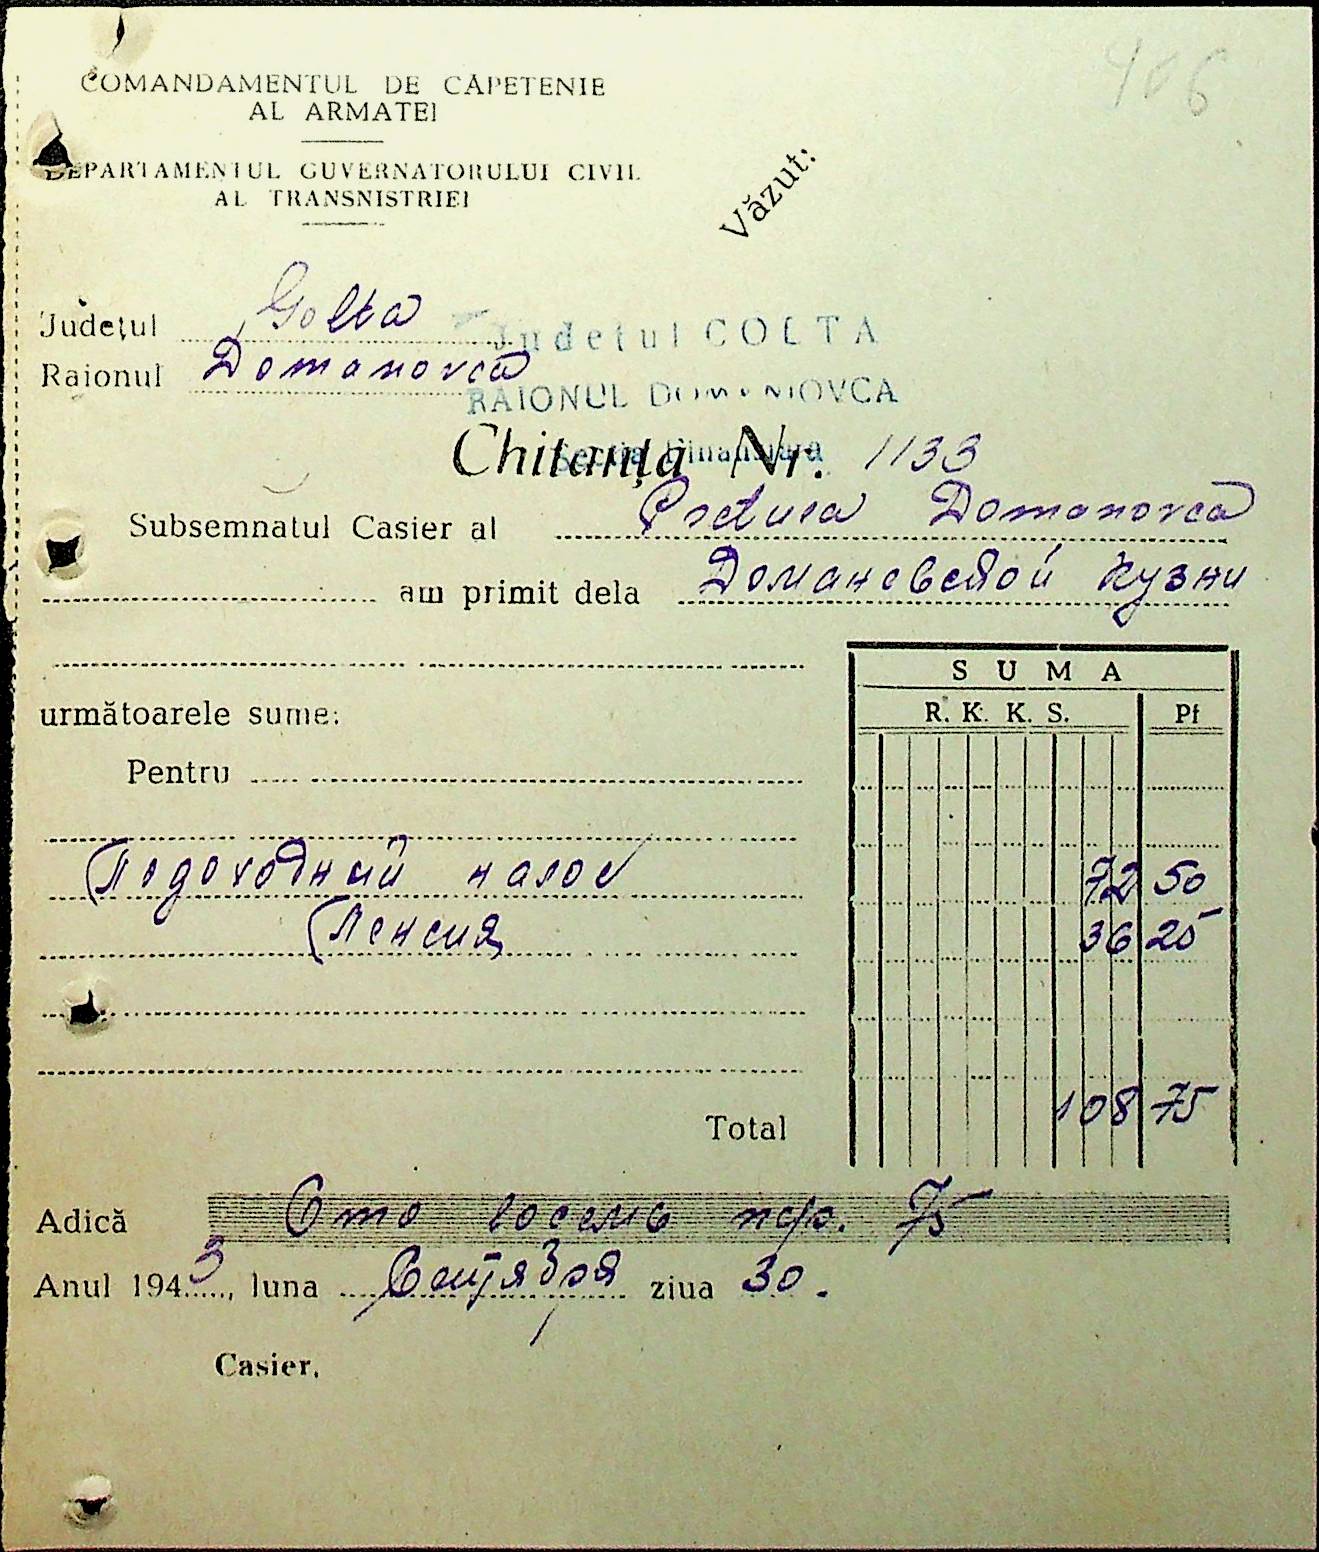 406
COMANDAMENTUL DE CĂPETENIE
AL ARMATEI
DEPARTAMENTUL GUVERNATORULUI CIVIL
AL TRANSNISTRIEI
Văzut:
Județul Golta
Județul GOLTA
Raionul Domanovca
RAIONUL DOMANIOVCA
Chitanța Nr. 1133
Subsemnatul Casier al Pretura Domanovca
am primit dela Домановской кузни
SUMA
următoarele sume:
R. K. K. S. Pf
Pentru
Подоходный налог 72 50
Пенсия 36 25
108 75
Total
Adică Сто восемь пф. 75
Anul 1943, luna Сентября ziua 30.
Casier,